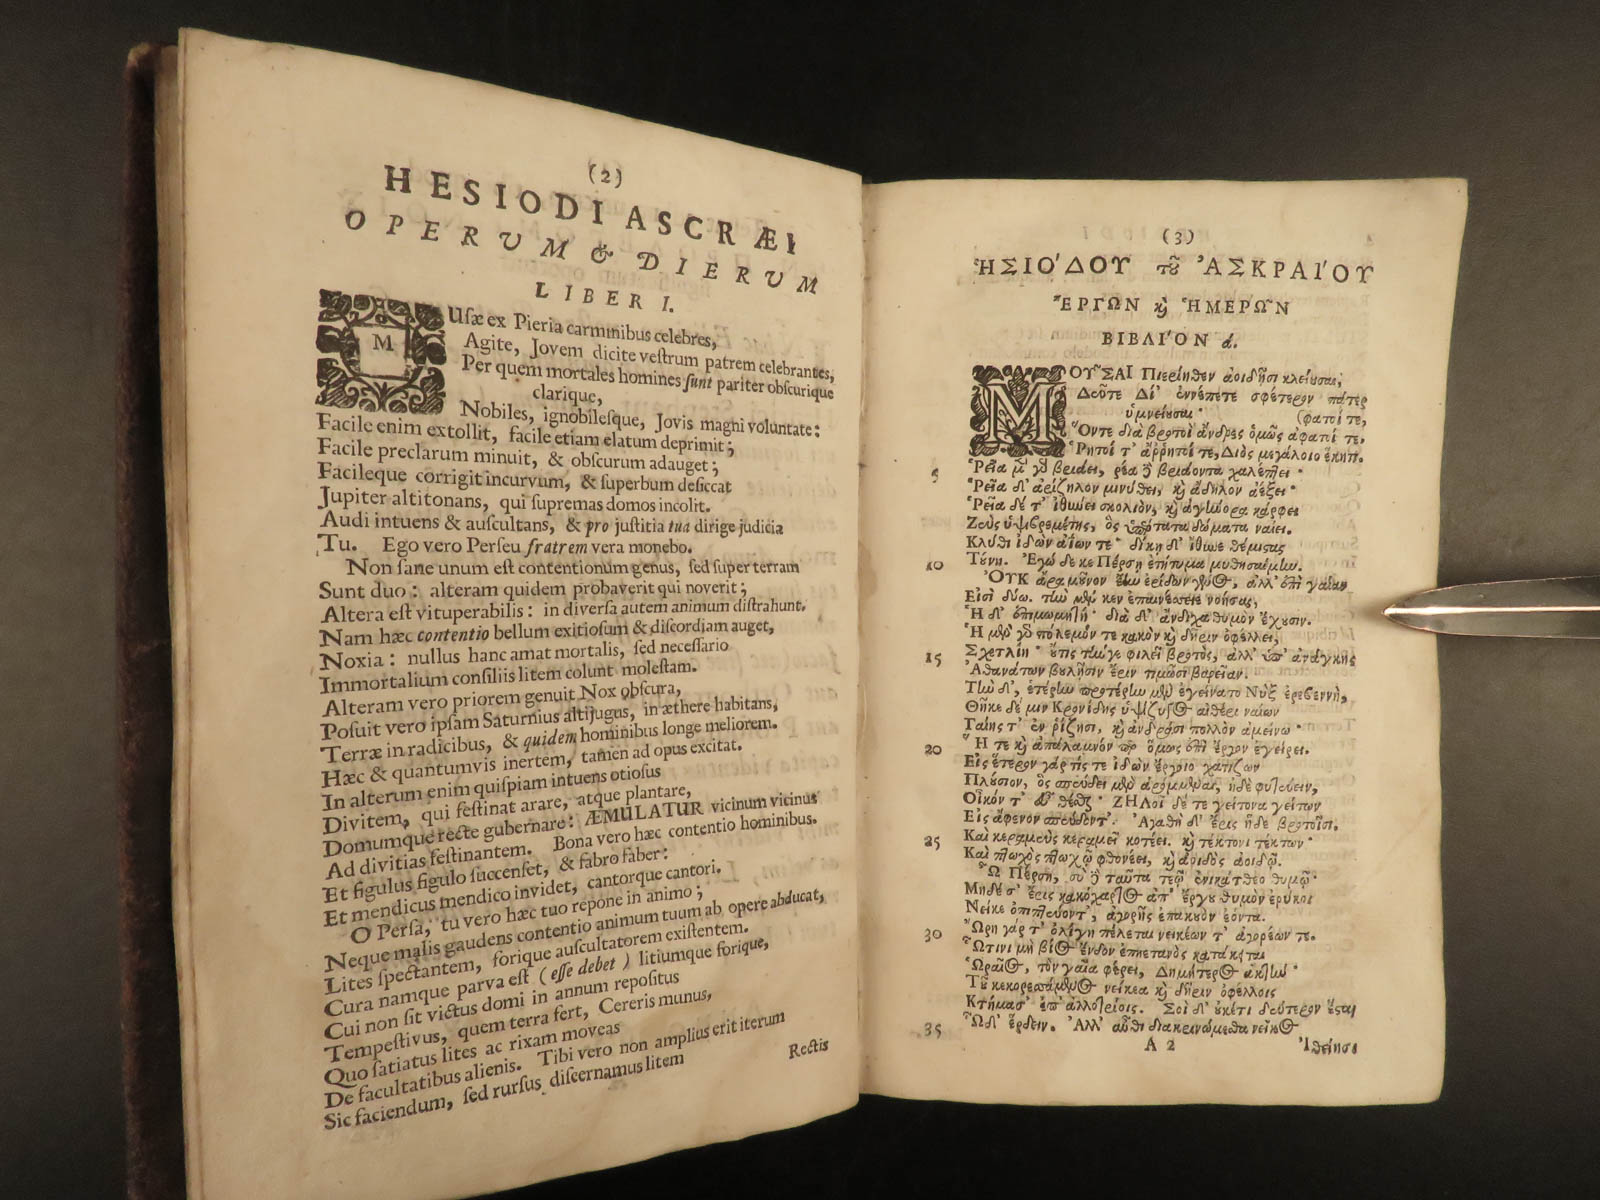 (2)
HESIODI ASCRÆI
OPERUM & DIERUM
LIBER I.
MUsæ ex Pieria carminibus celebres,
Agite, Jovem dicite veſtrum patrem celebrantes,
Per quem mortales homines ſunt pariter obſcurique
clarique,
Nobiles, ignobileſque, Jovis magni voluntate:
Facile enim extollit, facile etiam elatum deprimit;
Facile preclarum minuit, & obſcurum adauget;
Facileque corrigit incurvum, & ſuperbum deſiccat
Jupiter altitonans, qui ſupremas domos incolit.
Audi intuens & auſcultans, & pro juſtitia tua dirige judicia
Tu. Ego vero Perſeu fratrem vera monebo.
Non ſane unum eſt contentionum genus, ſed ſuper terram
Sunt duo: alteram quidem probaverit qui noverit;
Altera eſt vituperabilis: in diverſa autem animum diſtrahunt.
Nam hæc contentio bellum exitioſum & diſcordiam auget,
Noxia: nullus hanc amat mortalis, ſed neceſſario
Immortalium conſiliis litem colunt moleſtam.
Alteram vero priorem genuit Nox obſcura,
Poſuit vero ipſam Saturnius altijugus, in æthere habitans,
Terræ in radicibus, & quidem hominibus longe meliorem.
Hæc & quantumvis inertem, tamen ad opus excitat.
In alterum enim quiſpiam intuens otioſus
Divitem, qui feſtinat arare, atque plantare,
Domumque recte gubernare: ÆMULATUR vicinum vicinus
Ad divitias feſtinantem. Bona vero hæc contentio hominibus.
Et figulus figulo ſuccenſet, & fabro faber:
Et mendicus mendico invidet, cantorque cantori.
O Perſa, tu vero hæc tuo repone in animo;
Neque malis gaudens contentio animum tuum ab opere abducat,
Lites ſpectantem, forique auſcultatorem exiſtentem.
Cura namque parva eſt (eſſe debet) litiumque forique,
Cui non ſit victus domi in annum repoſitus
Tempeſtivus, quem terra fert, Cereris munus,
Quo ſatiatus lites ac rixam moveas
De facultatibus alienis. Tibi vero non amplius erit iterum
Sic faciendum, ſed rurſus diſcernamus litem
Rectis
(3)
ἩΣΙΌΔΟΥ τοῦ ἈΣΚΡΑΊΟΥ
ἜΡΓΩΝ καὶ ἩΜΕΡΩ͂Ν
ΒΙΒΛΊΟΝ ά.
ΜΟΥ͂ΣΑΙ Πιερίηθεν ἀοιδῇσι κλείουσαι,
Δεῦτε Δί' ἐννέπετε σφέτερον πατέρ
ὑμνείουσαι· (φατοί τε,
Ὅντε διὰ βροτοὶ ἄνδρες ὁμῶς ἄφατοί τε,
Ῥητοί τ' ἄῤῥητοί τε, Διὸς μεγάλοιο ἕκητι.
5 Ῥεῖα μὲν γὰρ βριάει, ῥέα δὲ βριάοντα χαλέπτει·
Ῥεῖα δ' ἀρίζηλον μινύθει, καὶ ἄδηλον ἀέξει·
Ῥεῖα δέ τ' ἰθύνει σκολιὸν, καὶ ἀγήνορα κάρφει
Ζεὺς ὑψιβρεμέτης, ὃς ὑπέρτατα δώματα ναίει.
Κλῦθι ἰδὼν ἀΐων τε· δίκῃ δ' ἴθυνε θέμιστας
10 Τύνη. Ἐγὼ δέ κε Πέρσῃ ἐτήτυμα μυθησαίμην.
ΟΥΚ ἄρα μοῦνον ἔην ἐρίδων γένος, ἀλλ' ἐπὶ γαῖαν
Εἰσὶ δύω. τὴν μέν κεν ἐπαινέσειε νοήσας,
Ἡ δ' ἐπιμωμητή· διὰ δ' ἄνδιχα θυμὸν ἔχουσιν.
Ἡ μὲν γὰρ πόλεμόν τε κακὸν καὶ δῆριν ὀφέλλει,
15 Σχετλίη· οὔτις τήνγε φιλεῖ βροτὸς, ἀλλ' ὑπ' ἀνάγκης
Ἀθανάτων βουλῇσιν ἔριν τιμῶσι βαρεῖαν.
Τὴν δ', ἑτέρην προτέρην μὲν ἐγείνατο Νὺξ ἐρεβεννὴ,
Θῆκε δέ μιν Κρονίδης ὑψίζυγος αἰθέρι ναίων
Γαίης τ' ἐν ῥίζῃσι, καὶ ἀνδράσι πολλὸν ἀμείνω·
20 Ἥ τε καὶ ἀπάλαμνόν περ ὅμως ἐπὶ ἔργον ἐγείρει.
Εἰς ἕτερον γάρ τίς τε ἰδὼν ἔργοιο χατίζων
Πλούσιον, ὃς σπεύδει μὲν ἀρόμμεναι, ἠδὲ φυτεύειν,
Οἶκόν τ' εὖ θέσθαι· ΖΗΛοῖ δέ τε γείτονα γείτων
Εἰς ἄφενον σπεύδοντ'. Ἀγαθὴ δ' ἔρις ἥδε βροτοῖσι.
25 Καὶ κεραμεὺς κεραμεῖ κοτέει. καὶ τέκτονι τέκτων·
Καὶ πτωχὸς πτωχῷ φθονέει, καὶ ἀοιδὸς ἀοιδῷ.
Ὦ Πέρση, σὺ δὲ ταῦτα τεῷ ἐνικάτθεο θυμῷ·
Μηδέ σ' ἔρις κακόχαρτος ἀπ' ἔργου θυμὸν ἐρύκοι
Νείκε' ὀπιπτεύοντ', ἀγορῆς ἐπακουὸν ἐόντα.
30 Ὤρη γάρ τ' ὀλίγη πέλεται νεικέων τ' ἀγορέων τε.
Ὧτινι μὴ βίος ἔνδον ἐπηετανὸς κατάκειται
Ὡραῖος, τὸν γαῖα φέρει, Δημήτερος ἀκτήν·
Τοῦ κεκορεσσάμενος νείκεα καὶ δῆριν ὀφέλλοις
Κτήμασ' ἐπ' ἀλλοτρίοις. Σοὶ δ' οὐκέτι δεύτερον ἔσται
35 Ὧδ' ἔρδειν. Ἀλλ' αὖθι διακρινώμεθα νεῖκος
A 2 Ἰθείῃσι